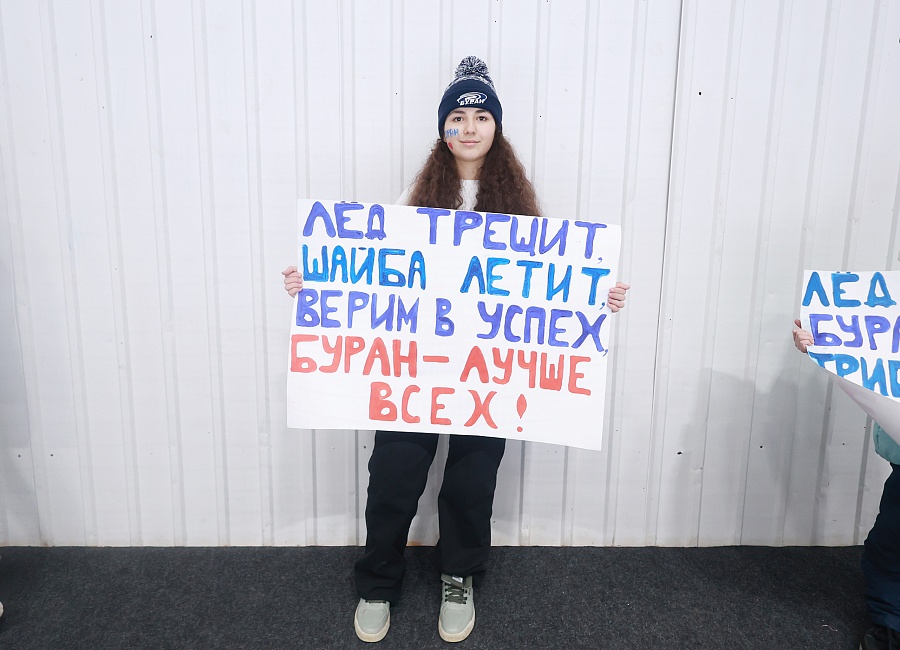 БУРАН
ЛЁД ТРЕЩИТ,
ШАЙБА ЛЕТИТ,
ВЕРИМ В УСПЕХ,
БУРАН – ЛУЧШЕ
ВСЕХ!
ЛЁД